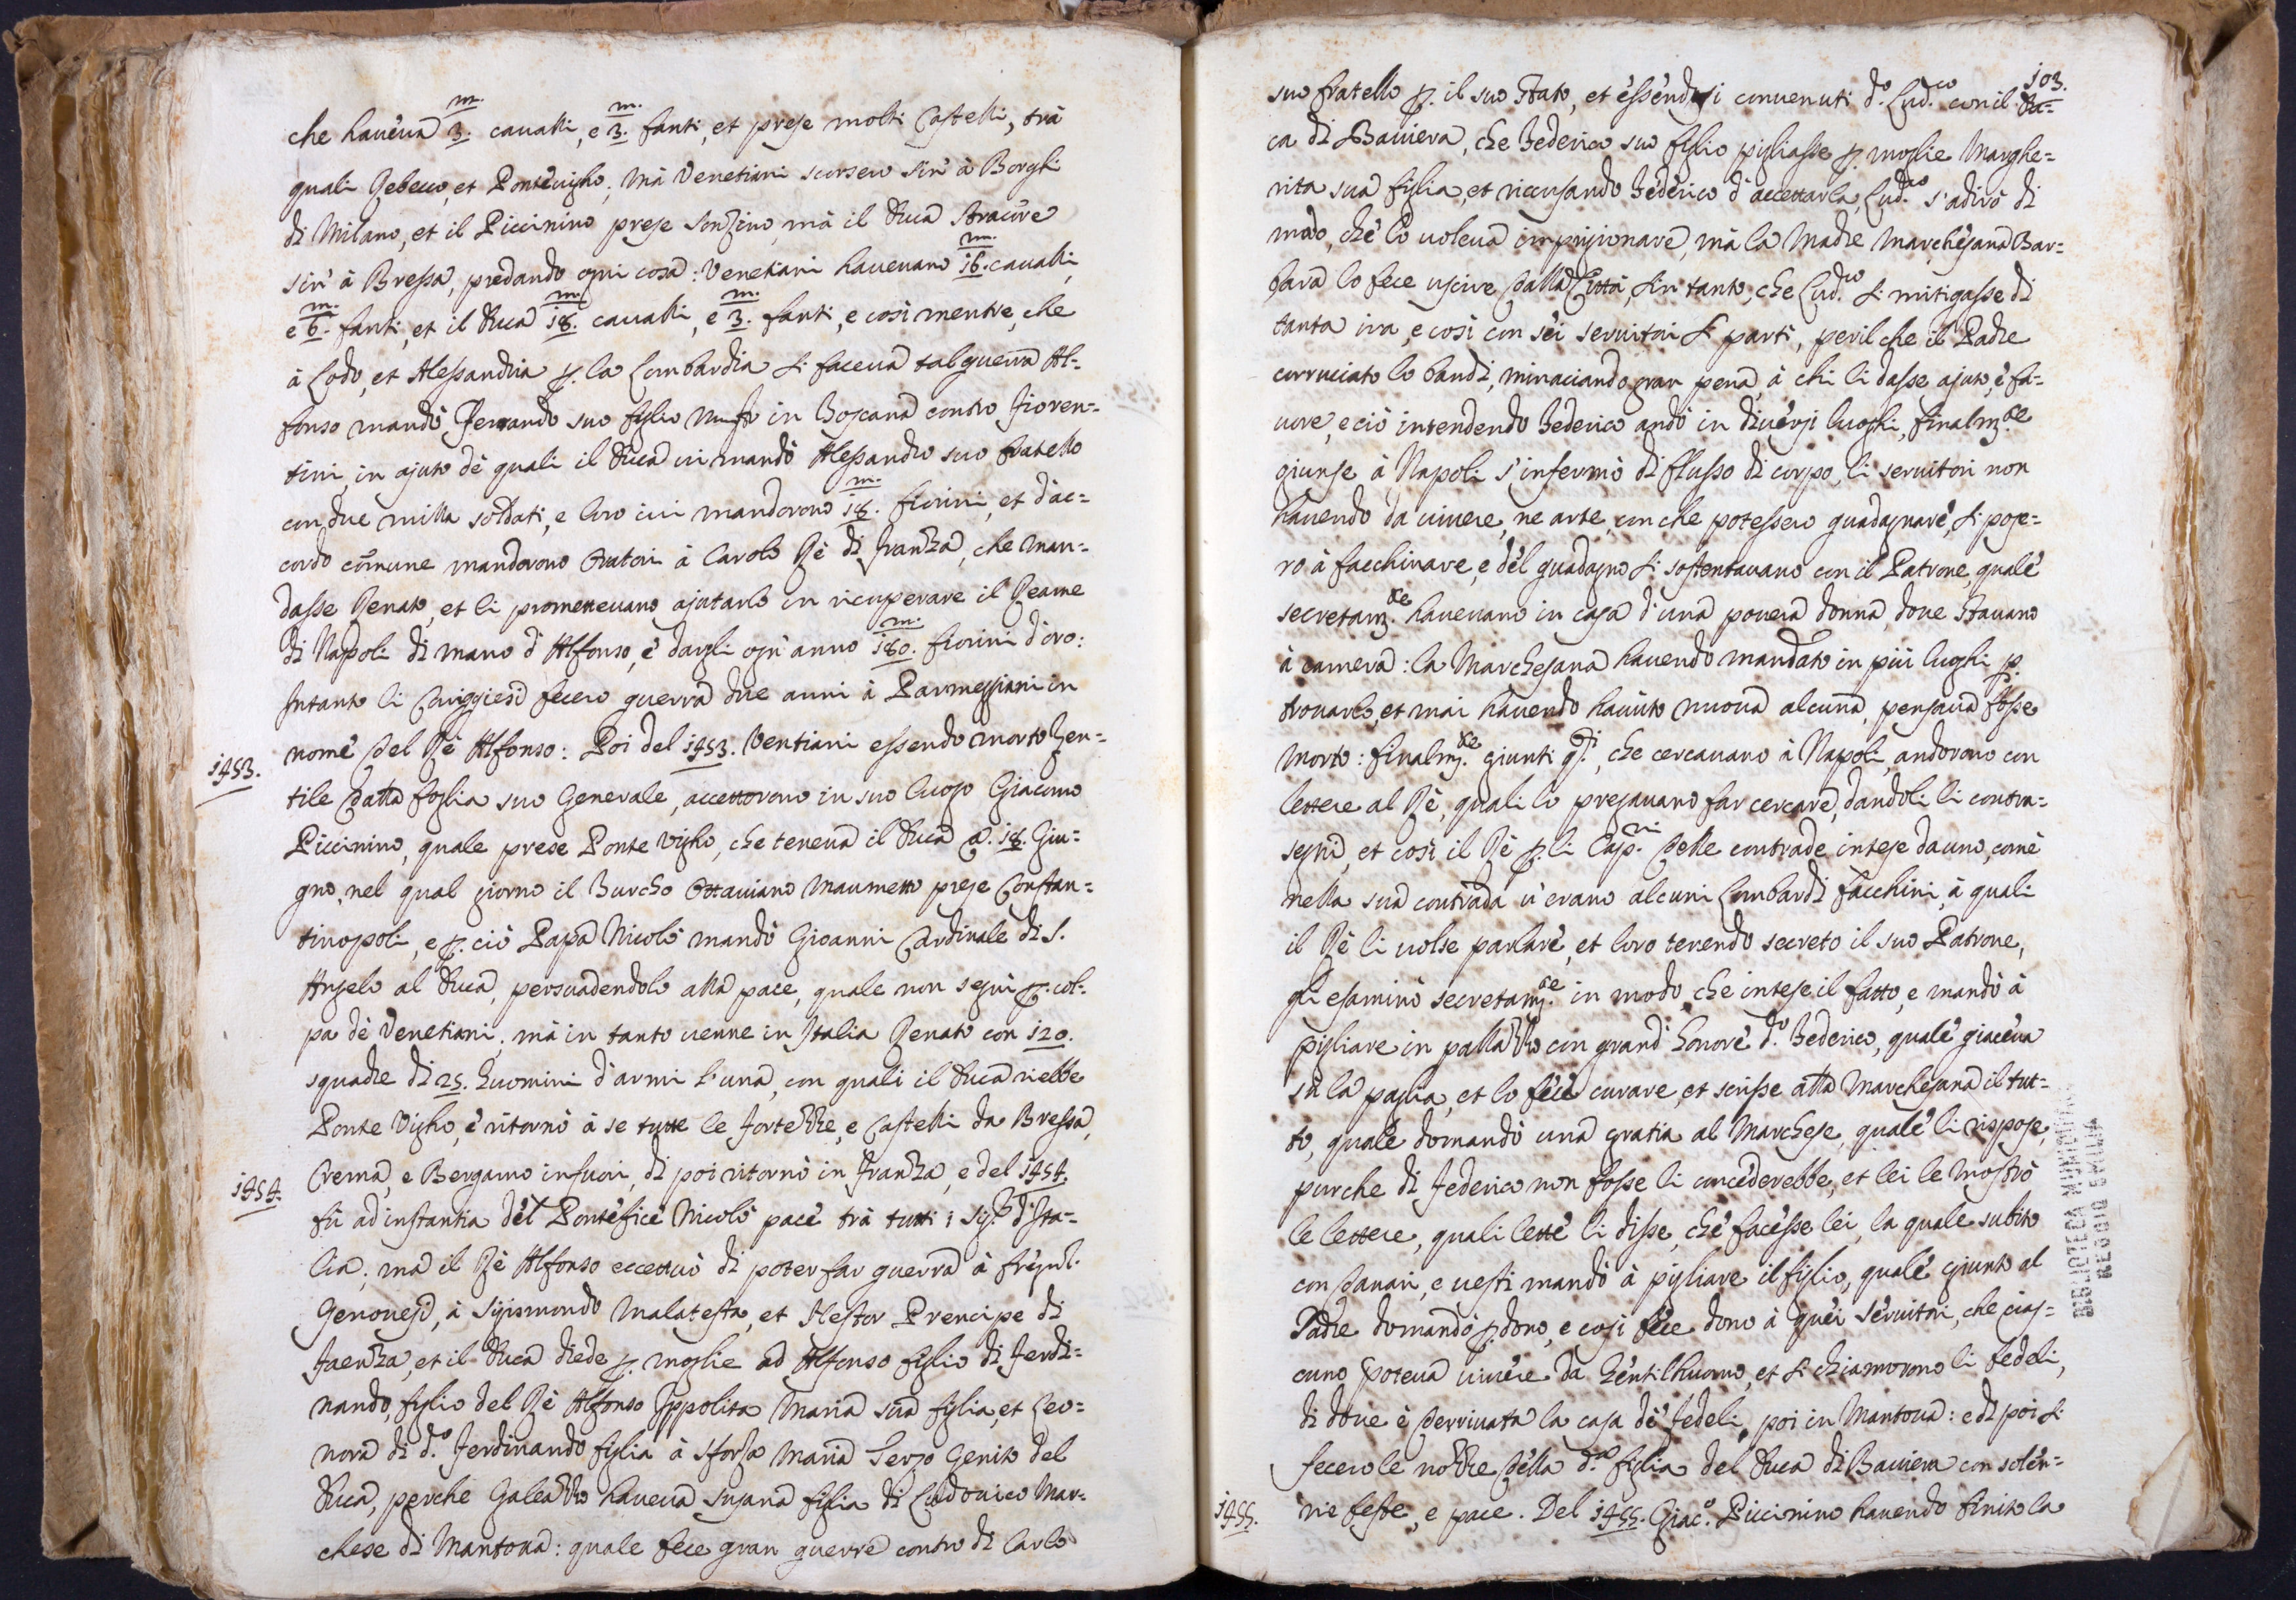 che haueua 3.m caualli, e 3.m fanti, et prese molti Castelli, trà
quali Rebecco, et Ponteuigho; mà Venetiani scorsero sin' à Borghi
di Milano, et il Piccinino prese Sonzino, mà il Duca stracore
sin' à Bressa, predando ogni cosa: Venetiani haueuano 16.m caualli,
e 6.m fanti, et il Duca 18.m caualli, e 3.m fanti, e così mentre, che
à Lodo, et Alessandria p. la Lombardia si faceua tal guerra Al-
fonso mandò Ferrando suo figlio in Toscana contro Fioren-
tini, in ajuto dè quali il Duca ui mandò Alessandro suo fratello
con due milla soldati, e loro iui mandorono 18.m fiorini, et d'ac-
cordo comune mandorono Oratori à Carolo Rè di Franza, che man-
dasse Renato, et li prometteuano ajutarlo in ricuperare il Reame
di Napoli di mano d'Alfonso, e dargli ogn'anno 180.m fiorini d'oro:
Intanto li Coreggiesi fecero guerra due anni à Parmeggiani in
nome del Rè Alfonso: Poi del 1453. Ventiani essendo morto Zen-
1453.
tile dalla foglia suo Generale, accettorono in suo luogo Giacomo
Piccinino, quale prese Ponte Vigho, che teneua il Duca a. 18. Giu-
gno, nel qual giorno il Turcho Ottauiano Maumetto prese Constan-
tinopoli, e p. ciò Papa Nicolò mandò Gioanni Cardinale di S.
Angelo al Duca, persuadendolo alla pace, quale non seguì p. col-
pa dè Venetiani; mà in tanto uenne in Italia Renato con 120.
squadre di 25. huomini d'armi l'una, con quali il Duca riebbe
Ponte Vigho, e ritornò à se tutte le fortezze, e Castelli da Bressa,
Crema, e Bergamo infuori, di poi ritornò in Franza, e del 1454.
1454.
fù ad instantia del Pontefice Nicolò pace trà tutti i Sig.ri d'Ita-
lia; ma il Rè Alfonso eccettuò di poter far guerra à
Genouesi, à Sigismondo Malatesta, et Hestor Prencipe di
Faenza, et il Duca diede p. moglie ad Alfonso figlio di Ferdi-
nando, figlio del Rè Alfonso Ippolita Maria sua figlia, et Leo-
nora di d.o Ferdinando figlia à Sforza Maria Terzo Genito del
Duca, perche Galeazzo haueua Susana figlia di Ludouico Mar-
chese di Mantoua: quale fece gran guerra contro di Carlo
103.
suo fratello p. il suo stato, et essendosi conuenuti d.o Lud.co con il Du-
ca di Bauiera, che Federico suo figlio pigliasse p. moglie Marghe-
rita sua figlia, et riccusando Federico d'accettarla, Lud.co s'adirò di
modo, che lo uoleua impriggionare, mà la Madre Marchesana Bar-
bara lo fece uscire dalla Città, sin tanto, che Lud.co si mitigasse di
tanta ira, e così con sei seruitori si partì, peril che il Padre
corruciato lo bandì, minaciando gran pena, à chi li dasse ajuto, e fa-
uore, e ciò intendendo Federico andò in diuersi luoghi, finalm.te
giunse à Napoli s'infermò di flusso di corpo, li seruitori non
hauendo da uiuere, ne arte, con che potessero guadagnare, si pose-
ro à facchinare, e del guadagno si sostentauano con il Patrone, quale
secretam.te haueuano in casa d'una pouera donna, doue stauano
à camera: la Marchesana hauendo mandato in più lughi p.
trouarlo, et mai hauendo hauuto nuoua alcuna, pensaua fosse
morto: finalm.te giunti q.ti, che cercauano à Napoli, andorono con
lettere al Rè, quali lo pregauano far cercare, dandoli li contra-
segni, et così il Rè p. li Cap.ni delle contrade intese da uno, come
nella sua contrada u'erano alcuni Lombardi facchini, à quali
il Rè li uolse parlare, et loro tenendo secreto il suo Patrone,
gli esaminò secretam.te in modo, che intese il fatto, e mandò à
pigliare in pallazzo con grand'honore d.o Federico, quale giaceua
sù la paglia, et lo fece curare, et scrisse alla Marchesana il tut-
to, quale domandò una gratia al Marchese, quale li rispose,
purche di Federico non fosse li concederebbe, et lei le mostrò
le lettere, quali lette li disse, che facesse lei, la quale subito
con danari, e uesti mandò à pigliare il figlio, quale giunto al
Padre domandò p.dono, e così fece dono à quei seruitori, che cias-
cuno poteua uiuere da Zentilhuomo, et si chiamorono li fedeli,
di doue è derriuata la casa dè fedeli, poi in Mantoua: e di poi si
fecero le nozze della d.a figlia del Duca di Bauiera con solen-
nie feste, e pace. Del 1455. Giac.o Piccinino hauendo finito la
1455.
BIBLIOTECA MUNICIPALE
REGGIO EMILIA